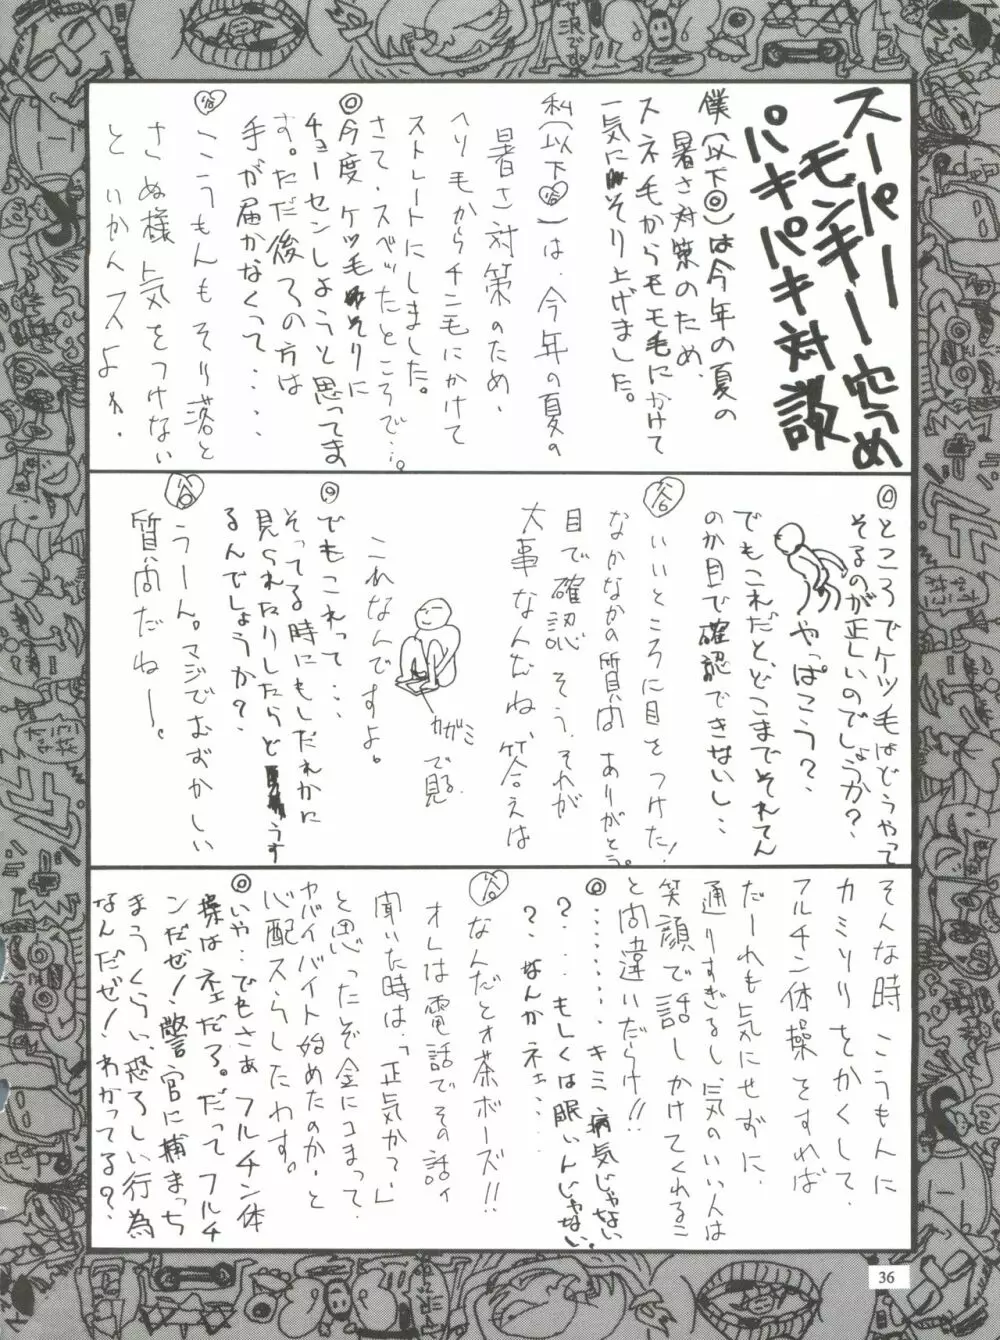 スーパー
モンキー穴うめ
パキパキ対談
僕(以下◎)は今年の夏の
暑さ対策のため、
スネ毛からモモ毛にかけて
一気にそり上げました。
私(以下谷)は、今年の夏の
暑さ対策のため、
ヘソ毛からチン毛にかけて
ストレートにしました。
さて、スベッたところで…。
◎今度ケツ毛そりに
チョーセンしようと思ってま
す。ただ後ろの方は
手が届かなくって・・・・
谷 こうもんもそり落と
さぬ様気をつけない
といかんスよ。
◎ところでケツ毛はどうやって
そるのが正しいのでしょうか?
やっぱこう?
でもこれだと、どこまでそれてん
のか目で確認できないし・・
谷 いいところに目をつけた!
なかなかの質問ありがとう。
目で確認、そう、それが
大事なんだね、答えは
カガミ
で見る
これなんですよ。
◎でもこれって・・・
そってる時にもしだれかに
見られたりしたらどうす
るんでしょうか?
谷 うーん。マジでむずかしい
質問だねー。
そんな時こうもんに
カミソリをかくして、
フルチン体操をすれば
だーれも気にせずに、
通りすぎるし、気のいい人は
笑顔で話しかけてくれるこ
と間違いだらけ!!
◎・・・・・・・キミ病気じゃない
?・・もしくは眠いんじゃない
?、なんかネェ・・・
谷 なんだとォ茶ボーズ!!
オレは電話でその話ィ
聞いた時は、「正気か?」
と思ったぞ金にコまって、
ヤバイバイト始めたのか、と
心配スらしたわす。
◎いや・・でもさぁフルチン体
操はネェだろ。だってフルチ
ンだぜ!警官に捕まっち
まうくらい、恐ろしい行為
なんだぜ!わかってる?
36